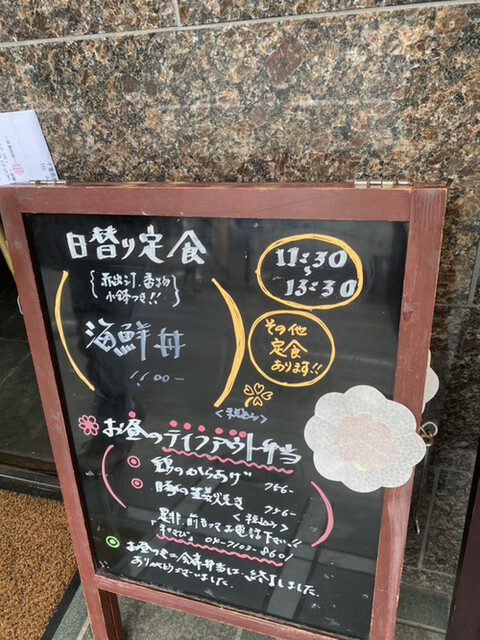 日替り定食
11:30
〜
13:30
{赤出汁、香の物
小鉢つき!!}
海鮮丼
1,100-
その他
定食
あります!!
<税込み>
お昼のテイクアウト弁当
鶏のからあげ 756-
豚の生姜焼き 756-
<税込み>
是非、前もってお電話下さい!!
04-7103-8601
お昼のミニ会席弁当は、終了しました。
ありがとうございました。